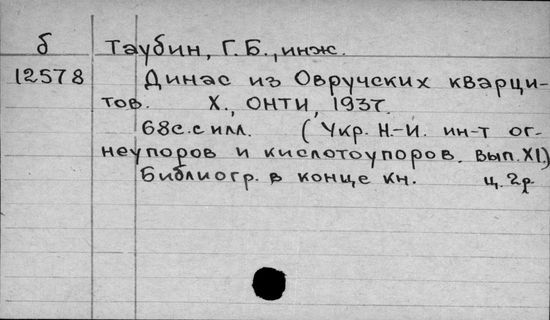 б Таубин, Г.Б., инж.
12578 Динас из Овручских кварци-
тов. Х., ОНТИ, 1937.
68с. с илл. (Укр. Н-И. ин-т ог-
неупоров и кислотоупоров. вып. XI)
Библиогр. в конце кн. ц. 2р